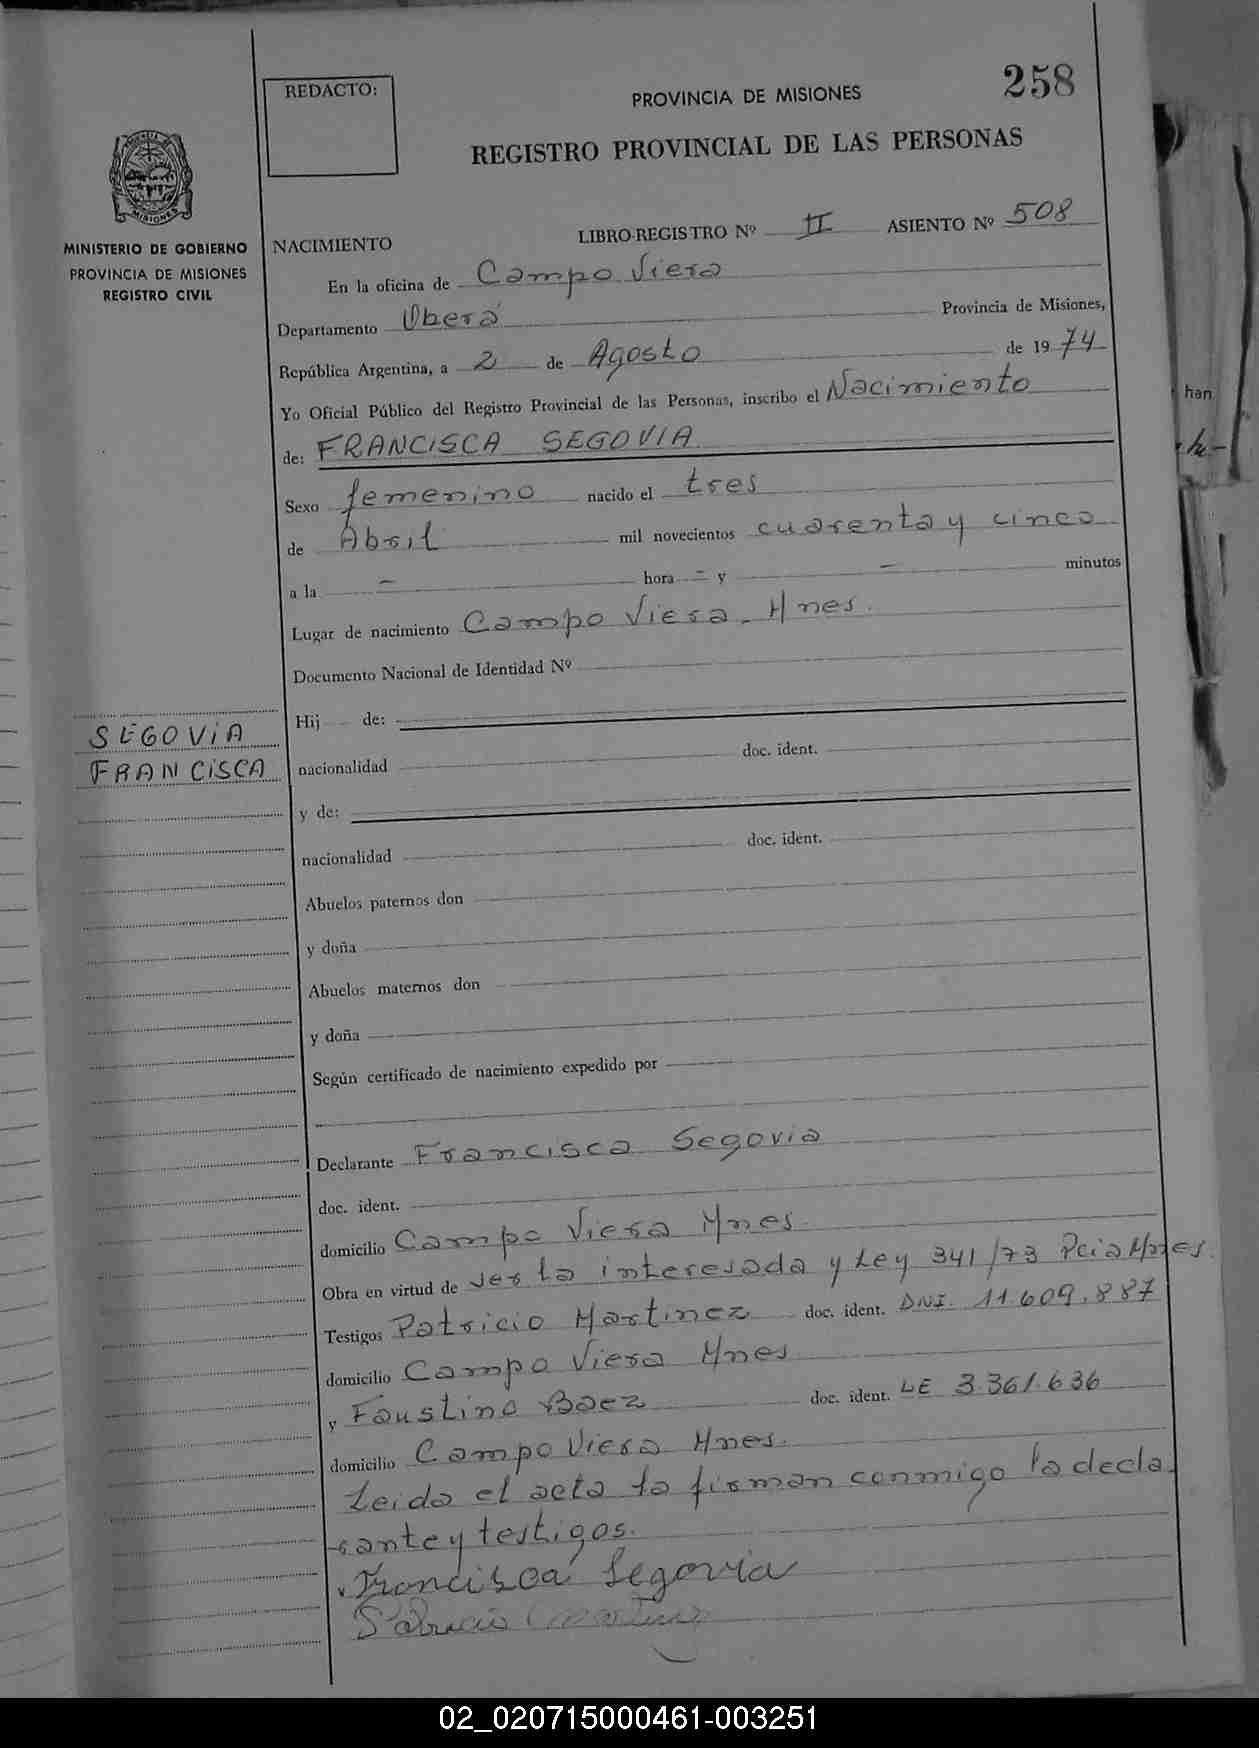 258
REDACTO:
PROVINCIA DE MISIONES
REGISTRO PROVINCIAL DE LAS PERSONAS
MISIONES
MINISTERIO DE GOBIERNO
PROVINCIA DE MISIONES
REGISTRO CIVIL
NACIMIENTO
LIBRO-REGISTRO Nº II ASIENTO Nº 508
En la oficina de Campo Viera
Departamento Oberá Provincia de Misiones,
República Argentina, a 2 de Agosto de 1974
Yo Oficial Público del Registro Provincial de las Personas, inscribo el Nacimiento
de: FRANCISCA SEGOVIA
Sexo femenino nacido el tres
de Abril mil novecientos cuarenta y cinco
a la — hora — y — minutos
Lugar de nacimiento Campo Viera - Mnes.
Documento Nacional de Identidad Nº
Hij de:
SEGOVIA
FRANCISCA
nacionalidad doc. ident.
y de:
nacionalidad doc. ident.
Abuelos paternos don
y doña
Abuelos maternos don
y doña
Según certificado de nacimiento expedido por
Declarante Francisca Segovia
doc. ident.
domicilio Campo Viera Mnes.
Obra en virtud de ser la interesada y Ley 341/73 Pcia Mnes.
Testigos Patricio Martinez doc. ident. DNI. 11.609.887
domicilio Campo Viera Mnes
y Faustino Baez doc. ident. LE 3.361.636
domicilio Campo Viera Mnes.
Leida el acta la firman conmigo la decla
rante y testigos.
Francisca Segovia
Patricio Martinez
han
02_020715000461-003251